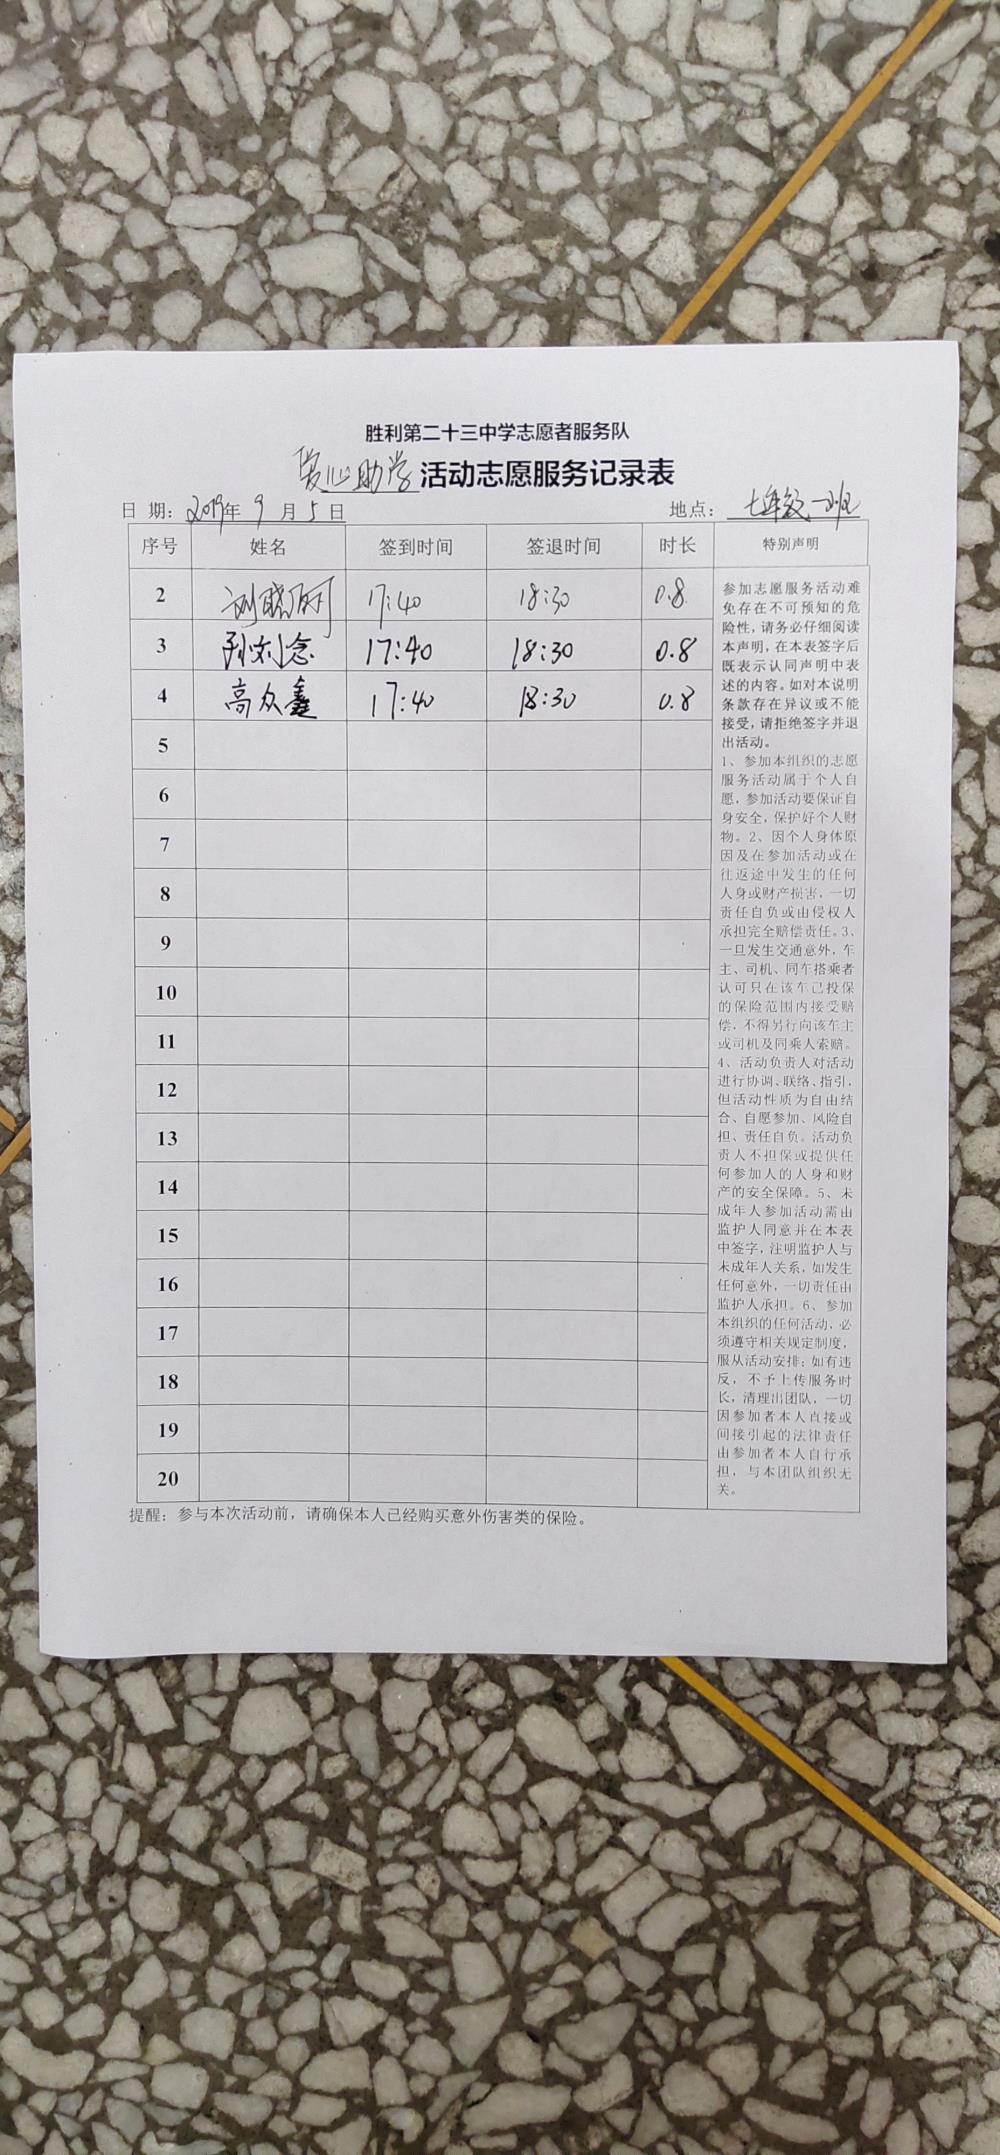 胜利第二十三中学志愿者服务队
爱心助学活动志愿服务记录表
日 期：2019年 9 月 5 日 地点：七年级一班
序号 姓名 签到时间 签退时间 时长 特别声明
2 刘晓 17:40 18:30 0.8
3 孙刘念 17:40 18:30 0.8
4 高众鑫 17:40 18:30 0.8
5
6
7
8
9
10
11
12
13
14
15
16
17
18
19
20
参加志愿服务活动难
免存在不可预知的危
险性，请务必仔细阅读
本声明，在本表签字后
既表示认同声明中表
述的内容。如对本说明
条款存在异议或不能
接受，请拒绝签字并退
出活动。
1、参加本组织的志愿
服务活动属于个人自
愿，参加活动要保证自
身安全，保护好个人财
物。2、因个人身体原
因及在参加活动或在
往返途中发生的任何
人身或财产损害，一切
责任自负或由侵权人
承担完全赔偿责任。3、
一旦发生交通意外，车
主、司机、同车搭乘者
认可只在该车已投保
的保险范围内接受赔
偿，不得另行向该车主
或司机及同乘人索赔。
4、活动负责人对活动
进行协调、联络、指引，
但活动性质为自由结
合、自愿参加、风险自
担、责任自负。活动负
责人不担保或提供任
何参加人的人身和财
产的安全保障。5、未
成年人参加活动需由
监护人同意并在本表
中签字，注明监护人与
未成年人关系，如发生
任何意外，一切责任由
监护人承担。6、参加
本组织的任何活动，必
须遵守相关规定制度，
服从活动安排；如有违
反，不予上传服务时
长，清理出团队，一切
因参加者本人直接或
间接引起的法律责任
由参加者本人自行承
担，与本团队组织无
关。
提醒：参与本次活动前，请确保本人已经购买意外伤害类的保险。